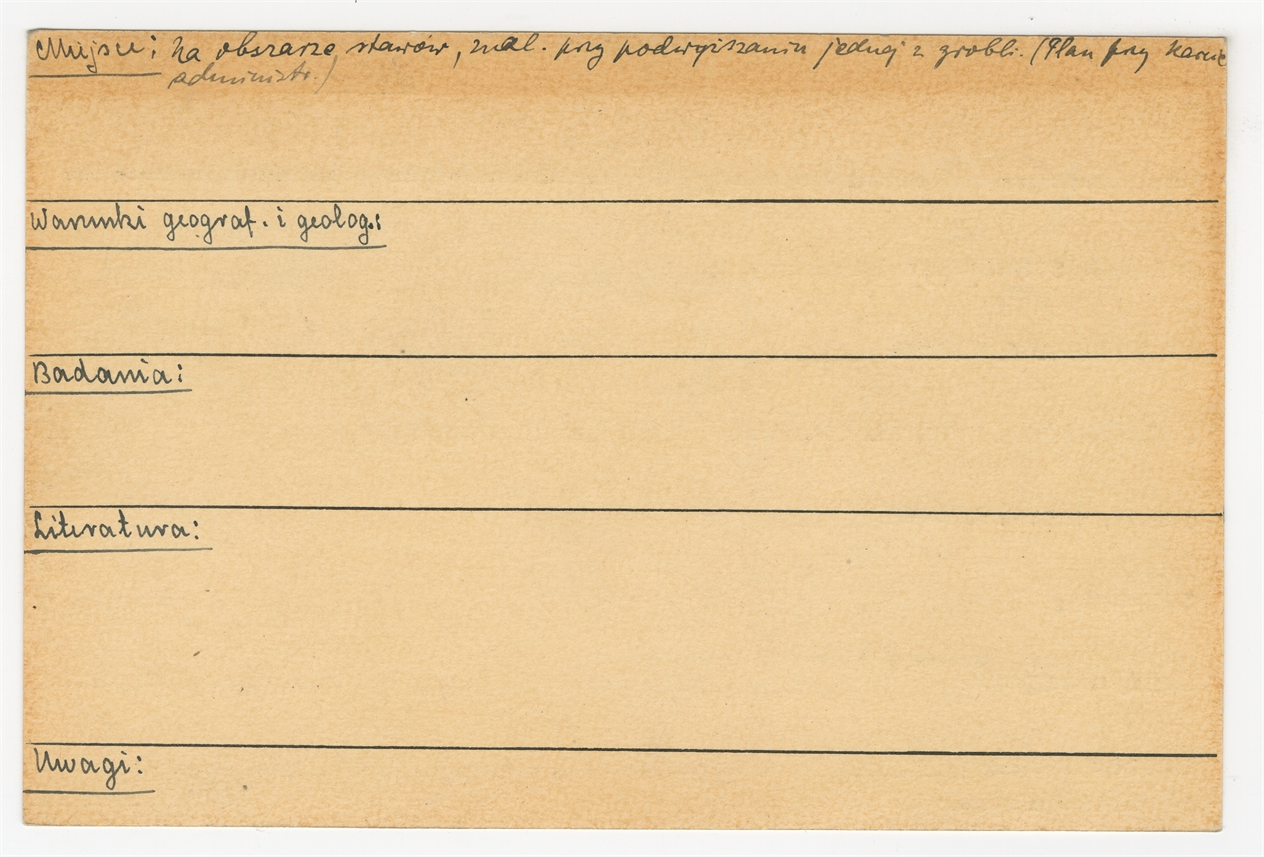 Miejsce: Na obszarze stawów, znal. przy podwyższaniu jednej z grobli. (Plan przy karcie
administr.)
Warunki geograf. i geolog.:
Badania:
Literatura:
Uwagi: